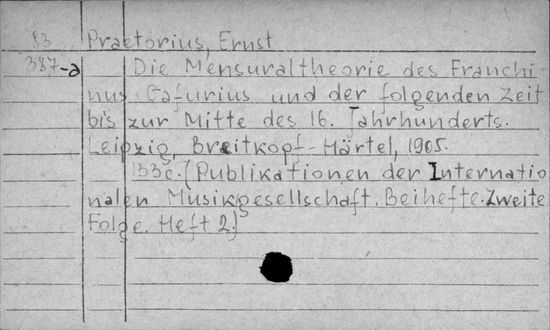 83 Praetorius, Ernst
387-a Die Mensuraltheorie des Franchi-
nus Gafurius und der folgenden Zeit
bis zur Mitte des 16. Jahrhunderts.
Leipzig, Breitkopf-Härtel, 1905.
133c. (Publikationen der Internatio
nalen Musikgesellschaft. Beihefte. Zweite
Folge. Heft 2.)